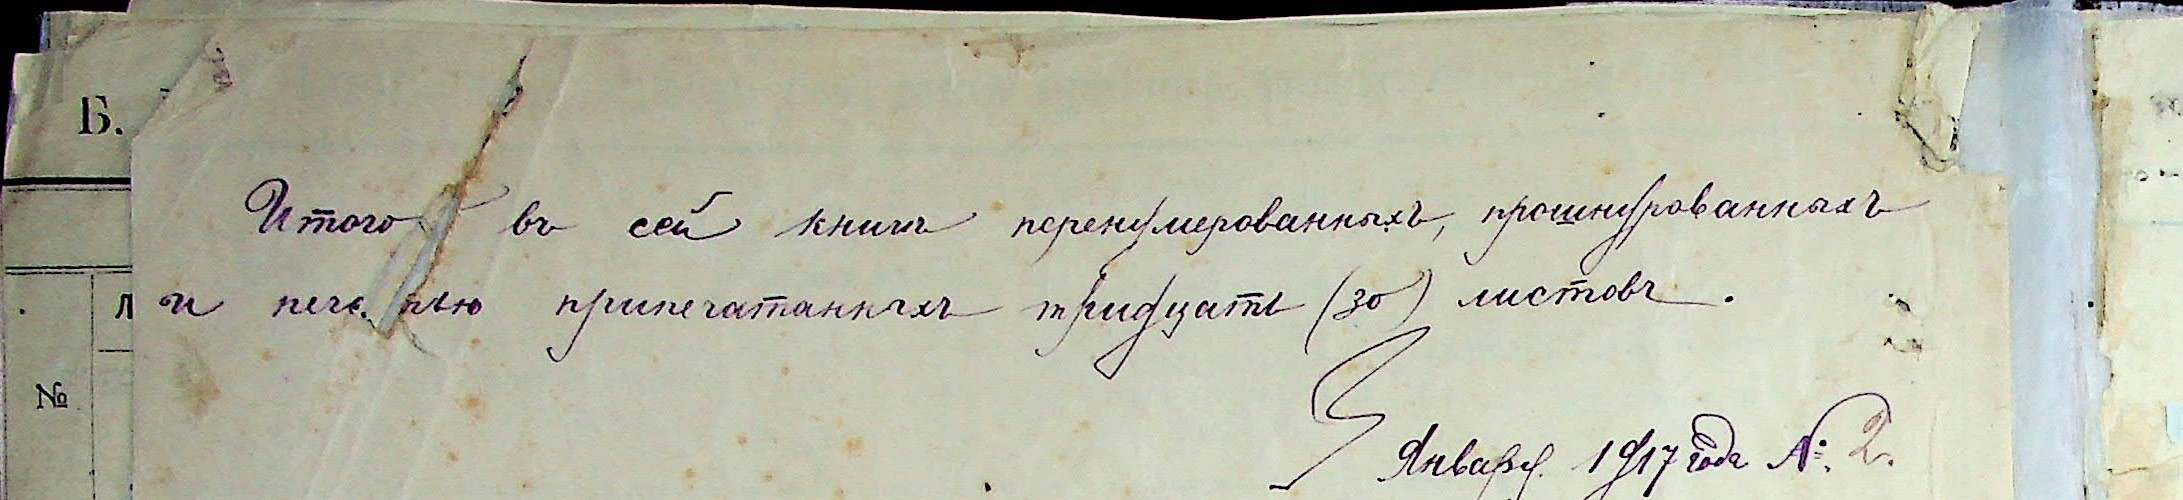 Б.
Итого въ сей книгѣ перенумерованныхъ, прошнурованныхъ
и печатью припечатанныхъ тридцать (30) листовъ.
Л
№
Января 1917 года №. 2.